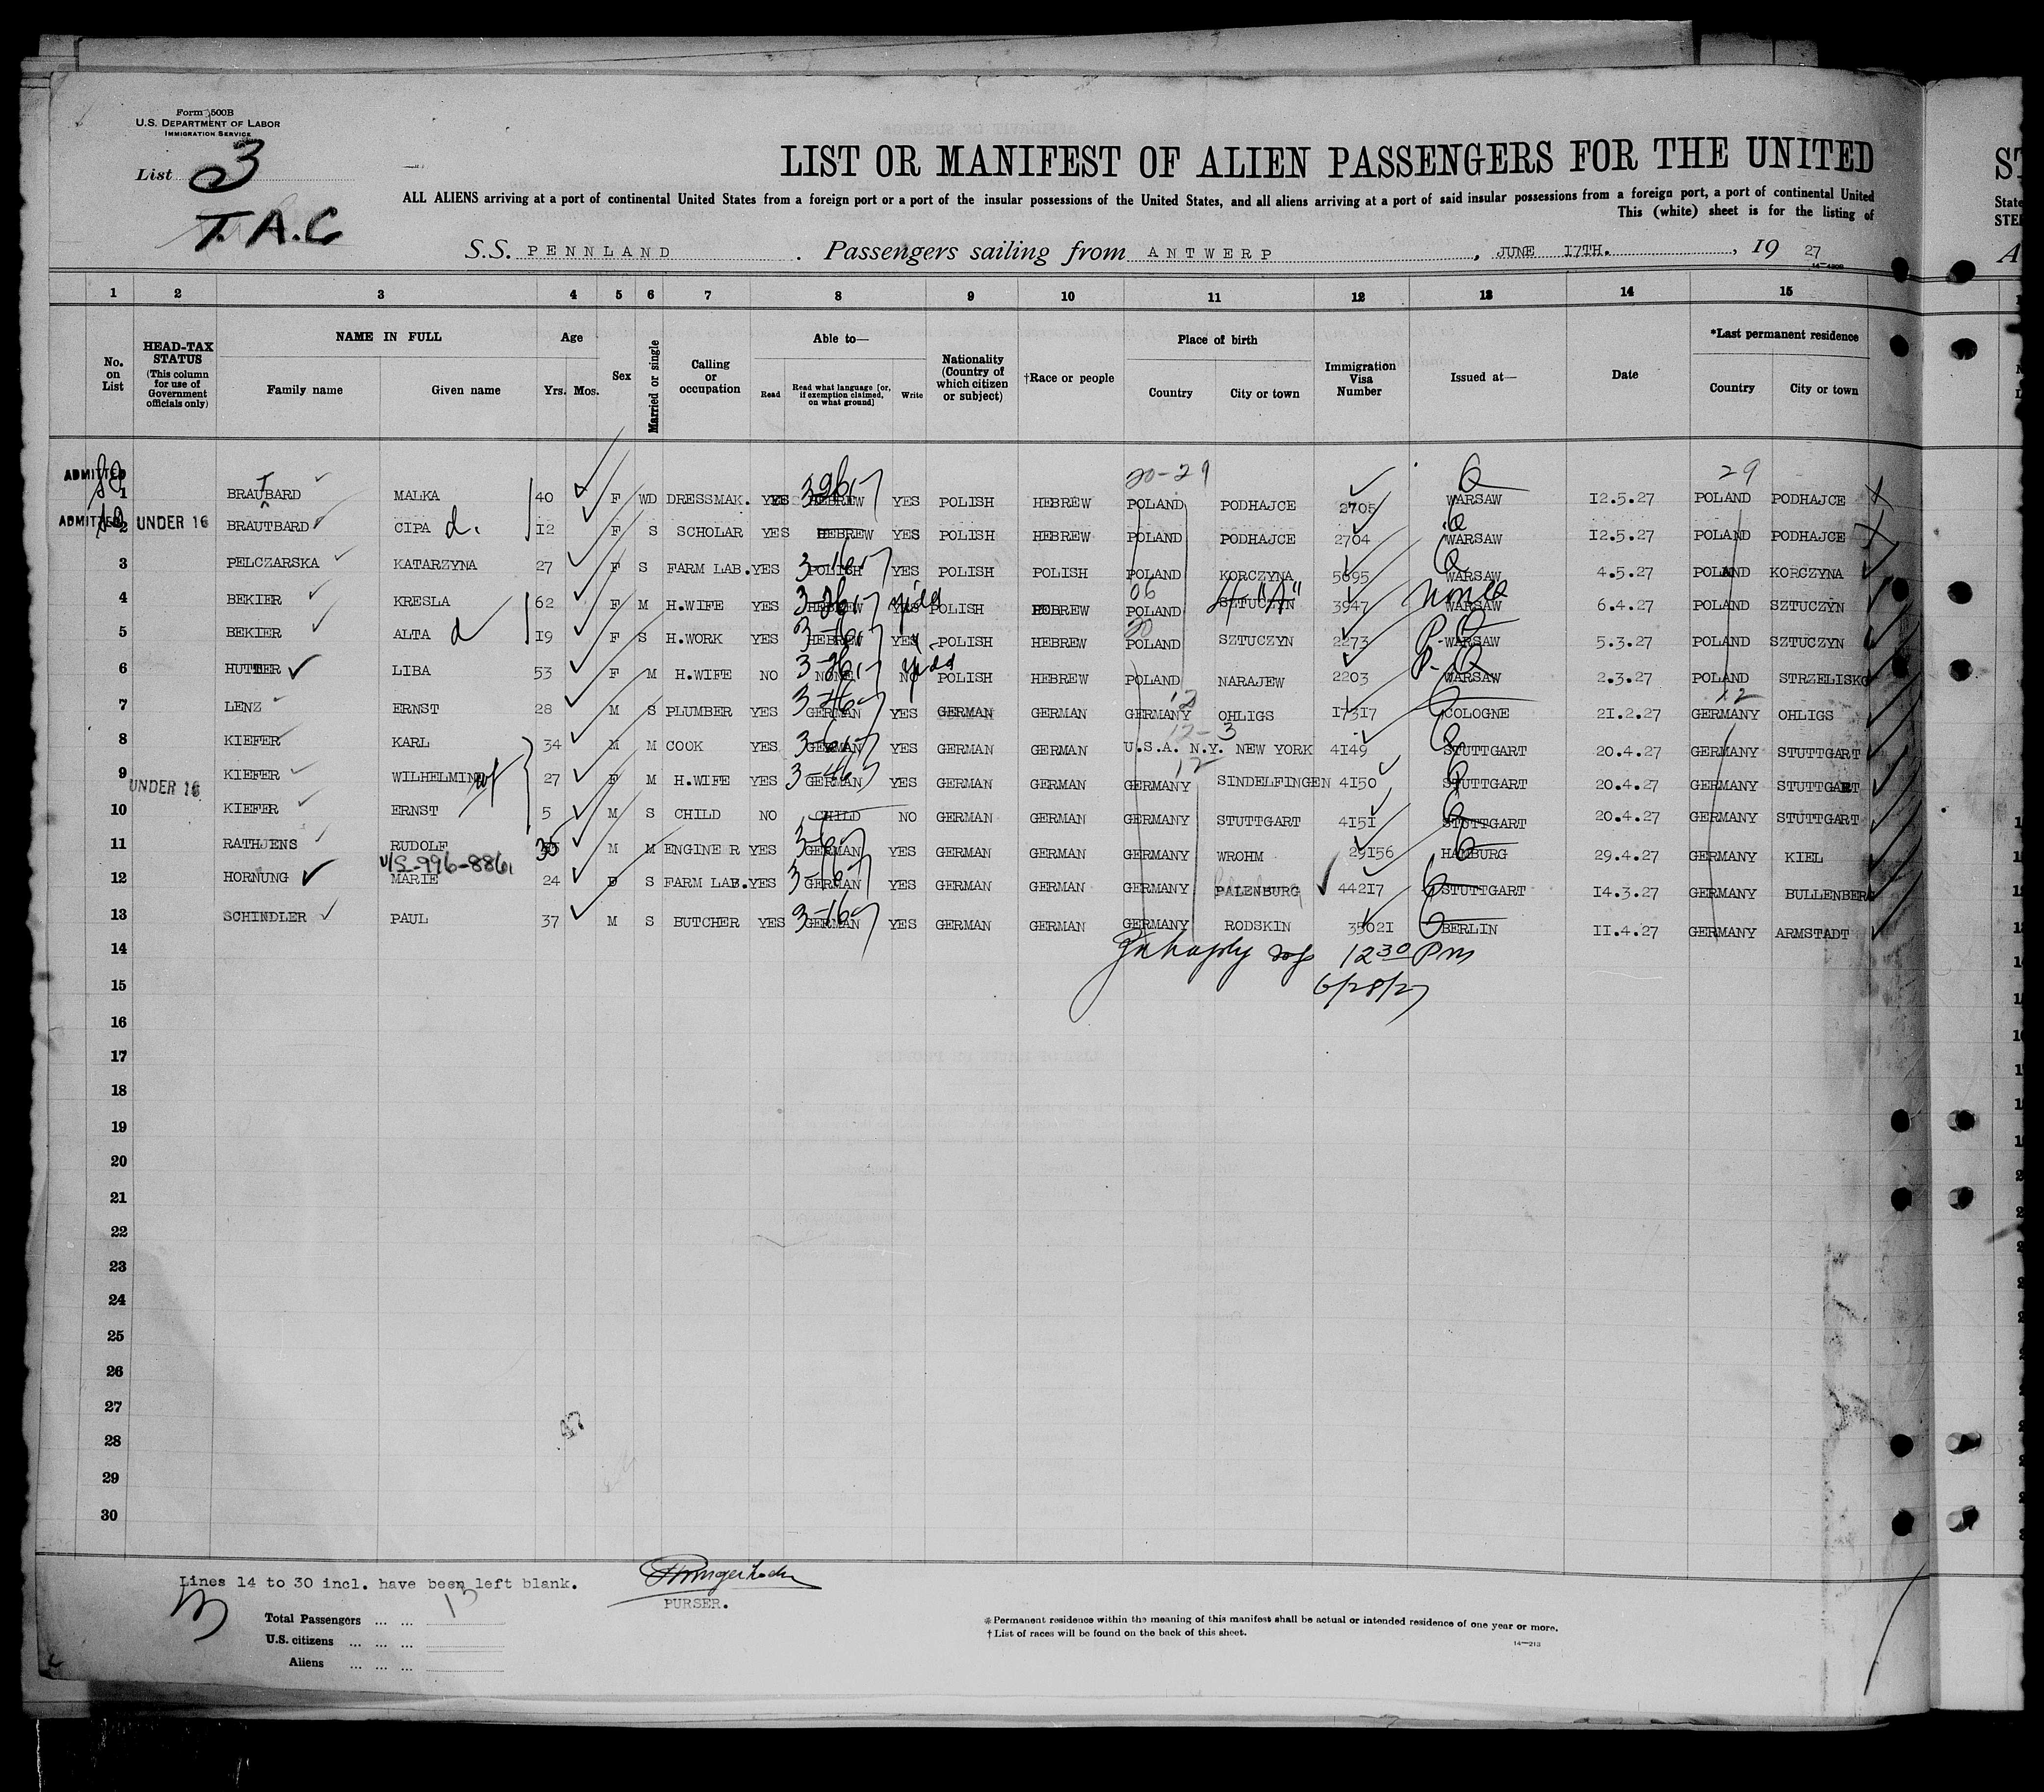 Form 500B
U.S. DEPARTMENT OF LABOR
IMMIGRATION SERVICE
List 3
T.A.C
LIST OR MANIFEST OF ALIEN PASSENGERS FOR THE UNITED
ALL ALIENS arriving at a port of continental United States from a foreign port or a port of the insular possessions of the United States, and all aliens arriving at a port of said insular possessions from a foreign port, a port of continental United
This (white) sheet is for the listing of
S.S. PENNLAND. Passengers sailing from ANTWERP, JUNE 17TH., 19 27
1 2 3 4 5 6 7 8 9 10 11 12 13 14 15
No. on List HEAD-TAX STATUS (This column for use of Government officials only) NAME IN FULL Family name Given name Age Yrs. Mos. Sex Married or single Calling or occupation Able to— Read Read what language [or, if exemption claimed, on what ground] Write Nationality (Country of which citizen or subject) †Race or people Place of birth Country City or town Immigration Visa Number Issued at— Date *Last permanent residence Country City or town
ADMITTED 20-29 29
1 BRAUBARD T MALKA 40 F WD DRESSMAK. YES HEBREW YES POLISH HEBREW POLAND PODHAJCE 2705 WARSAW 12.5.27 POLAND PODHAJCE
ADMITTED 2 UNDER 16 BRAUTBARD CIPA d. 12 F S SCHOLAR YES HEBREW YES POLISH HEBREW POLAND PODHAJCE 2704 WARSAW 12.5.27 POLAND PODHAJCE
3 PELCZARSKA KATARZYNA 27 F S FARM LAB. YES POLISH YES POLISH POLISH POLAND KORCZYNA 5695 WARSAW 4.5.27 POLAND KORCZYNA
4 BEKIER KRESLA 62 F M H.WIFE YES HEBREW YES POLISH HEBREW POLAND SZTUCZYN 3947 WARSAW 6.4.27 POLAND SZTUCZYN
5 BEKIER ALTA d 19 F S H.WORK YES HEBREW YES POLISH HEBREW POLAND SZTUCZYN 2273 WARSAW 5.3.27 POLAND SZTUCZYN
6 HUTTER LIBA 53 F M H.WIFE NO NONE NO POLISH HEBREW POLAND NARAJEW 2203 WARSAW 2.3.27 POLAND STRZELISKO
7 LENZ ERNST 28 M S PLUMBER YES GERMAN YES GERMAN GERMAN GERMANY OHLIGS 17317 COLOGNE 21.2.27 GERMANY OHLIGS
8 KIEFER KARL 34 M M COOK YES GERMAN YES GERMAN GERMAN U.S.A. N.Y. NEW YORK 4149 STUTTGART 20.4.27 GERMANY STUTTGART
9 KIEFER WILHELMINE wf 27 F M H.WIFE YES GERMAN YES GERMAN GERMAN GERMANY SINDELFINGEN 4150 STUTTGART 20.4.27 GERMANY STUTTGART
UNDER 16
10 KIEFER ERNST 5 M S CHILD NO CHILD NO GERMAN GERMAN GERMANY STUTTGART 4151 STUTTGART 20.4.27 GERMANY STUTTGART
11 RATHJENS RUDOLF 30 M M ENGINE R YES GERMAN YES GERMAN GERMAN GERMANY WROHM 29156 HAMBURG 29.4.27 GERMANY KIEL
12 HORNUNG MARIE 24 F S FARM LAB. YES GERMAN YES GERMAN GERMAN GERMANY PALENBURG 44217 STUTTGART 14.3.27 GERMANY BULLENBERG
13 SCHINDLER PAUL 37 M S BUTCHER YES GERMAN YES GERMAN GERMAN GERMANY RODSKIN 35021 BERLIN 11.4.27 GERMANY ARMSTADT
14 12 30 Pm
15 6/28/27
16
17
18
19
20
21
22
23
24
25
26
27
28
29
30
Lines 14 to 30 incl. have been left blank.
PURSER.
Total Passengers ... ... 13
U.S. citizens ... ... ...
Aliens ... ... ...
*Permanent residence within the meaning of this manifest shall be actual or intended residence of one year or more.
†List of races will be found on the back of this sheet.
14—213